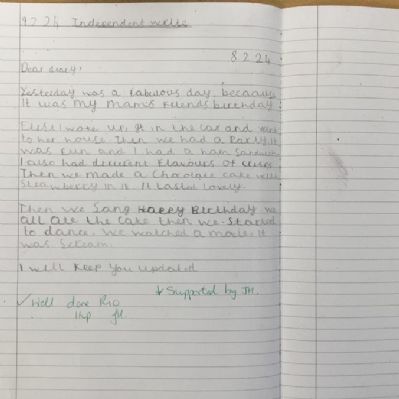 9.2.24 Independent write
8.2.24
Dear diary,
Yesterday was a fabulous day because
It was my mams friends birthday.
First I woke up, in the car and
to her house. Then we had a Party. It
was fun and I had a ham Sandwich
I also had different flavours of
Then we made a Chocolate cake with
Strawberry in it. It tasted lovely.
Then we Sang Happy Birthday we
all ate the cake then we started
to dance. we watched a movie. It
was Scream.
I will keep you updated
↓ Supported by JH.
✓ Well done Rio
1Hp JH.